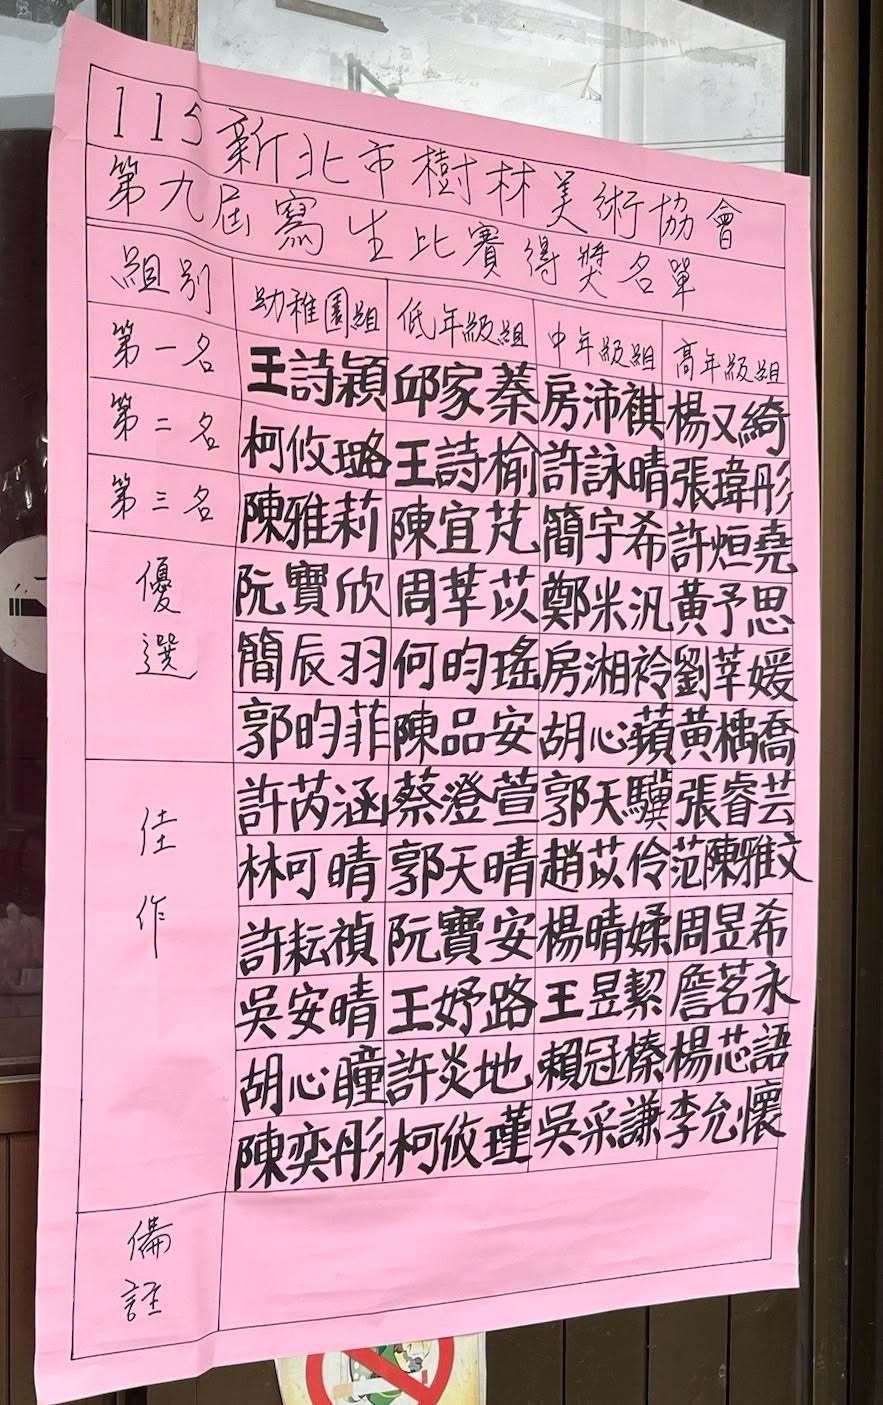 115新北市樹林美術協會
第九屆寫生比賽得獎名單
組別 幼稚園組 低年級組 中年級組 高年級組
第一名 王詩穎 邱家蓁 房沛祺 楊又綺
第二名 柯攸璐 王詩榆 許詠晴 張瑋彤
第三名 陳雅莉 陳宜芃 簡宇希 許烜堯
優選 阮寶欣 周莘苡 鄭米汎 黃予思
簡辰羽 何昀瑤 房湘衿 劉莘媛
郭昀菲 陳品安 胡心蘋 黃楀喬
佳作 許芮涵 蔡澄萱 郭天驥 張睿芸
林可晴 郭天晴 趙苡伶 范陳雅文
許耘禎 阮寶安 楊晴媃 周昱希
吳安晴 王妤路 王昱絜 詹茗永
胡心瞳 許炎地 賴冠榛 楊芯語
陳奕彤 柯攸瑾 吳采謙 李允懷
備註